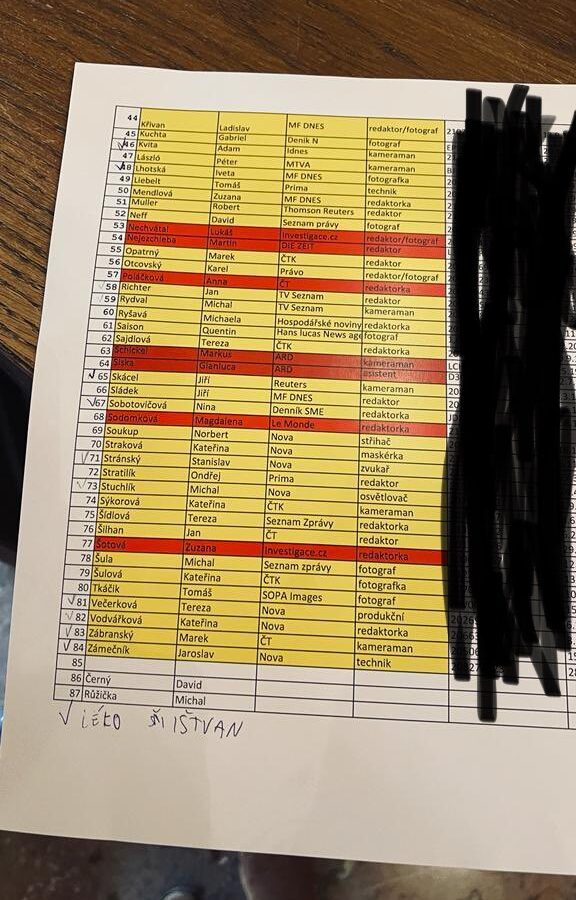 44 Křivan Ladislav MF DNES redaktor/fotograf
45 Kuchta Gabriel Deník N fotograf
46 Kvita Adam Idnes kameraman
47 László Péter MTVA kameraman
48 Lhotská Iveta MF DNES fotografka
49 Liebelt Tomáš Prima technik
50 Mendlová Zuzana MF DNES redaktorka
51 Müller Robert Thomson Reuters redaktor
52 Neff David Seznam právy fotograf
53 Nechvátal Lukáš Investigace.cz redaktor/fotograf
54 Nejezchleba Martin DIE ZEIT redaktor
55 Opatrný Marek ČTK redaktor
56 Otcovský Karel Právo redaktor/fotograf
57 Poláčková Anna ČT redaktorka
58 Richter Jan TV Seznam redaktor
59 Rydval Michal TV Seznam kameraman
60 Ryšavá Michaela Hospodářské noviny redaktorka
61 Saison Quentin Hans lucas News age fotograf
62 Sajdlová Tereza ČTK redaktorka
63 Schickel Markus ARD kameraman
64 Siska Gianluca ARD asistent
65 Skácel Jiří Reuters kameraman
66 Sládek Jiří MF DNES redaktor
67 Sobotovičová Nina Denník SME redaktorka
68 Sodomková Magdalena Le Monde redaktorka
69 Soukup Norbert Nova střihač
70 Straková Kateřina Nova maskérka
71 Stránský Stanislav Nova zvukař
72 Stratilík Ondřej Prima redaktor
73 Stuchlík Michal Nova osvětlovač
74 Sýkorová Kateřina ČTK kameraman
75 Šídlová Tereza Seznam Zprávy redaktorka
76 Šilhan Jan ČT redaktor
77 Šotová Zuzana Investigace.cz redaktorka
78 Šula Michal Seznam zprávy fotograf
79 Šulová Kateřina ČTK fotografka
80 Tkáčik Tomáš SOPA Images fotograf
81 Večerková Tereza Nova produkční
82 Vodvářková Kateřina Nova redaktorka
83 Zábranský Marek ČT kameraman
84 Zámečník Jaroslav Nova technik
85
86 Černý David
87 Růžička Michal
IŠTVAN